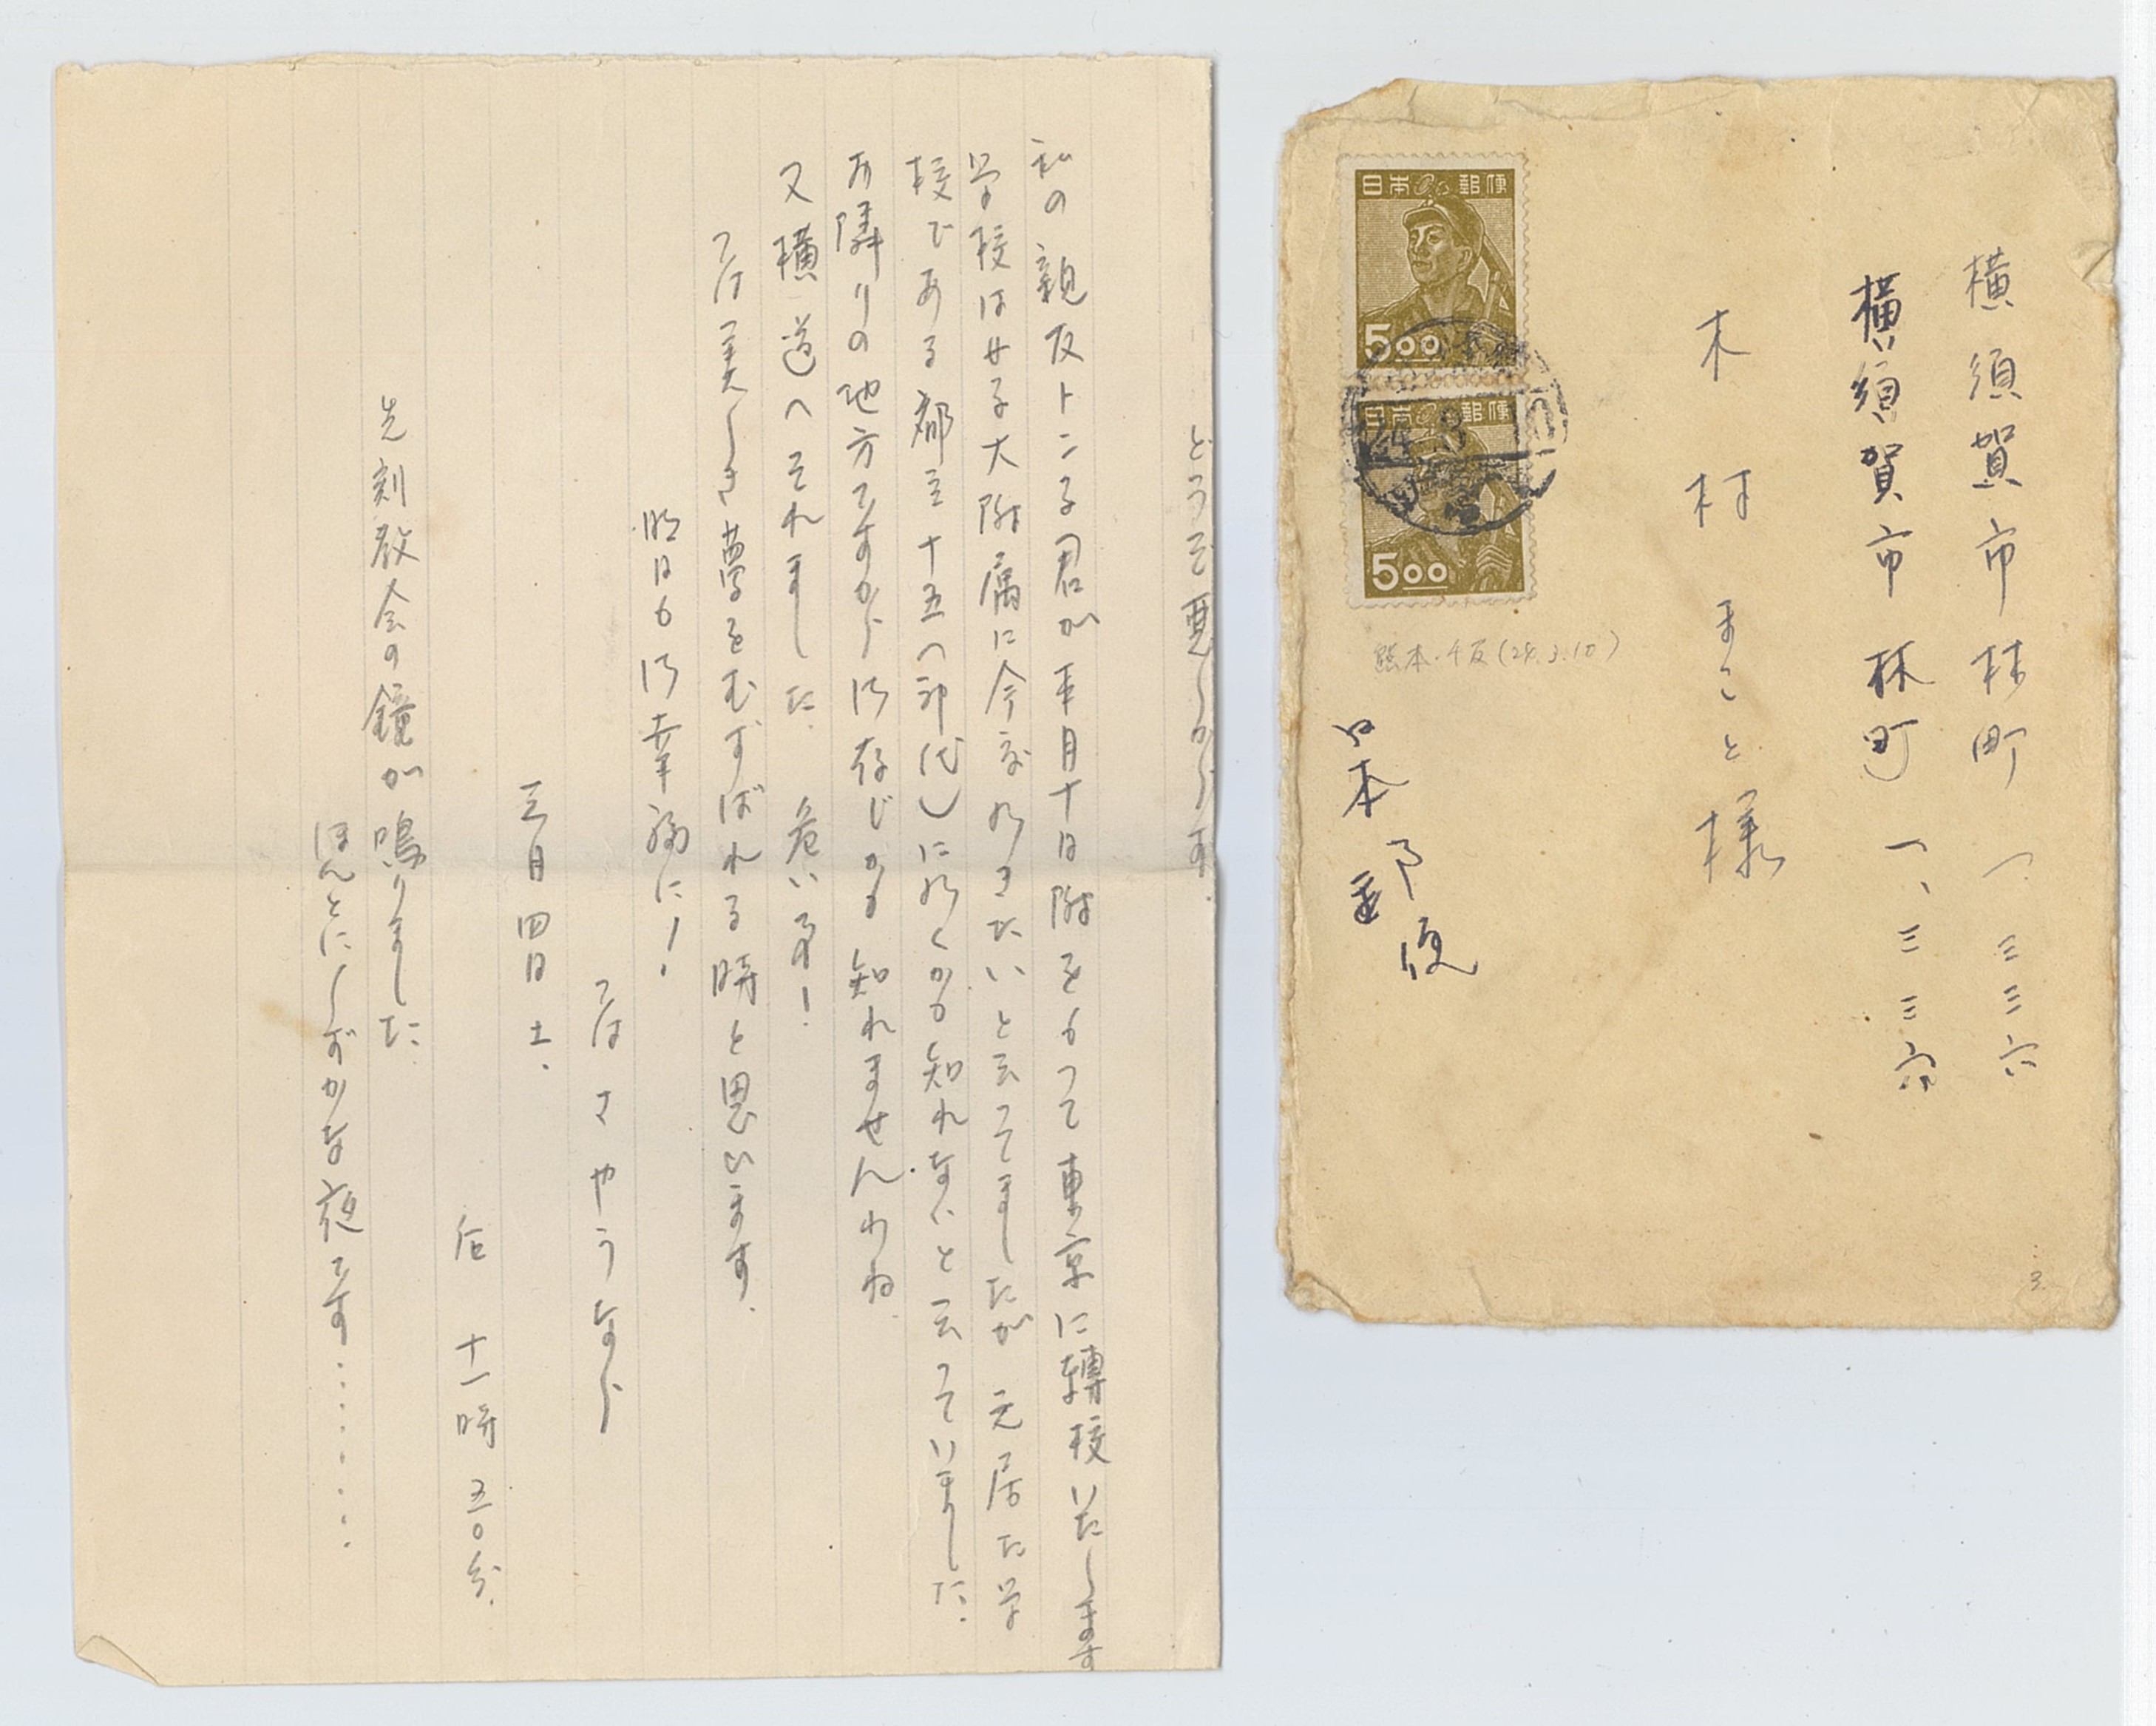 どうぞ悪しからず.
私の親友トン子君が本月十日附をもって東京に轉校いたします
学校は女子大附属に今度行きたいと云ってましたが 元居た学
校である都立十五(神代)に行くかも知れないと云っていました.
お隣りの地方ですから御存じかも知れませんわね.
又横道へそれました. 危い事!
では美しき夢をむすばれる時と思います.
明日も御幸福に!
ではさやうなら
三月四日 土.
后 十一時 五〇分.
先刻教会の鐘が鳴りました.
ほんとにしずかな夜です………
横須賀市林町 一 三三六
横須賀市林町 一、三三六
木村まこと様
日本郵便
500
日本郵便
500
24.3.10
日本
郵便
3